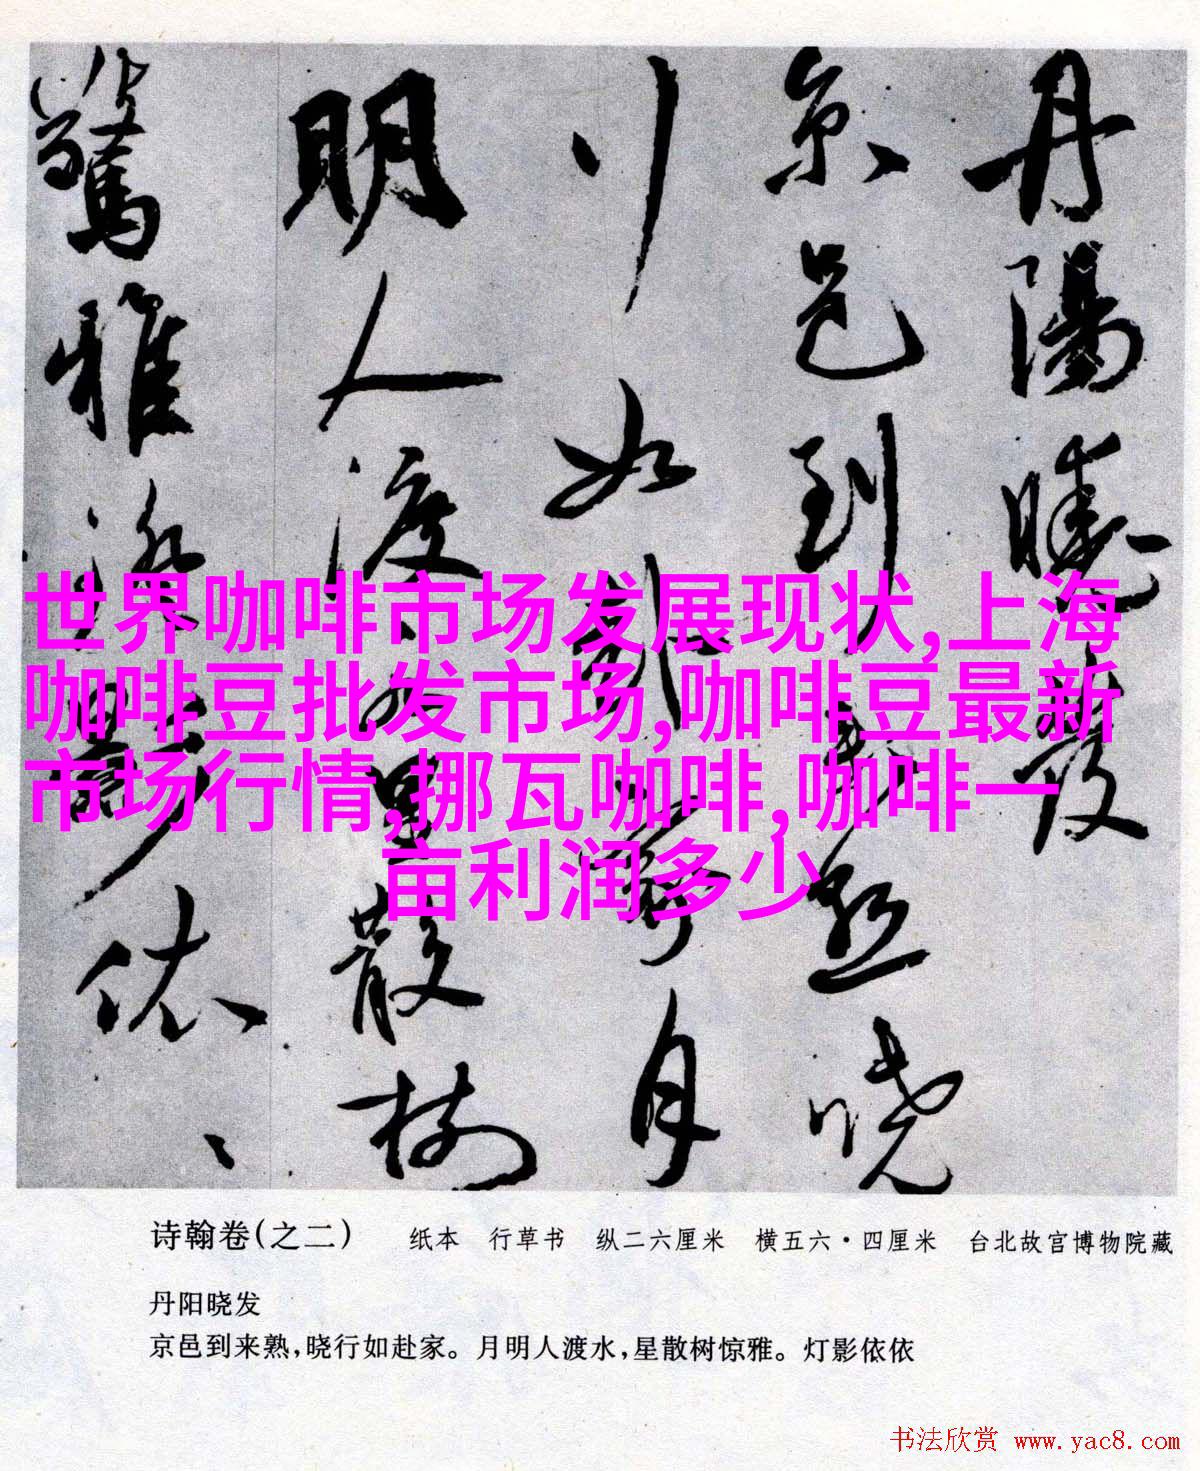 丹陽曉發
京邑到来熟曉
行如赴家月
明人渡水星散樹
驚雅
依、
世界咖啡市场发展现状,上海
咖啡豆批发市场,咖啡豆最新
市场行情,挪瓦咖啡,咖啡一
亩利润多少
诗翰卷(之二) 纸本 行草书 纵二六厘米 横五六·四厘米 台北故宫博物院藏
丹阳晓发
京邑到来熟,晓行如赴家。月明人渡水,星散树惊雅。灯影依依
书法欣赏 www.yac8.com